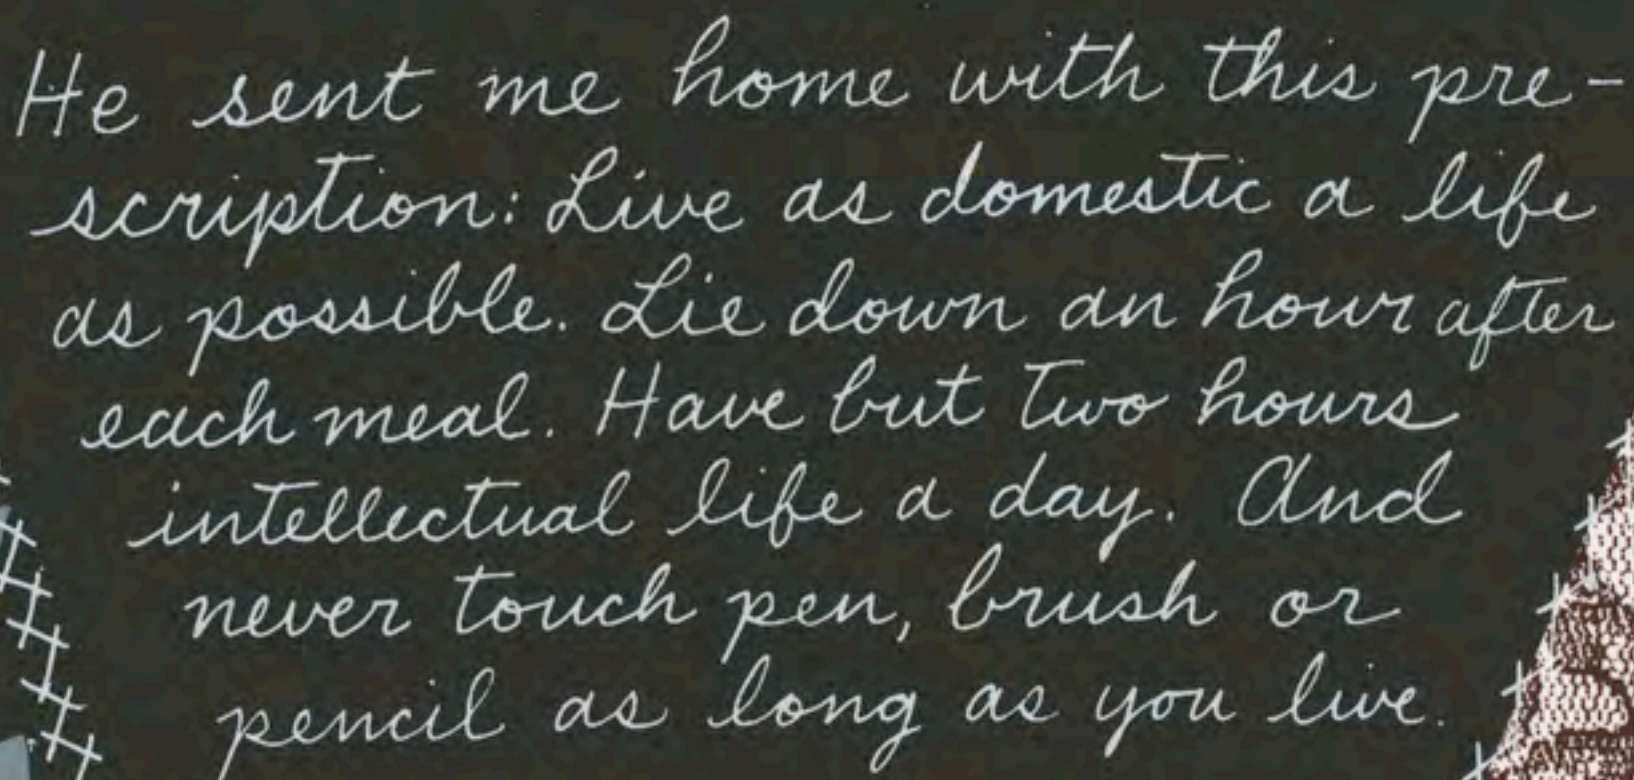 He sent me home with this pre-
scription: Live as domestic a life
as possible. Lie down an hour after
each meal. Have but two hours
intellectual life a day. And
never touch pen, brush or
pencil as long as you live.